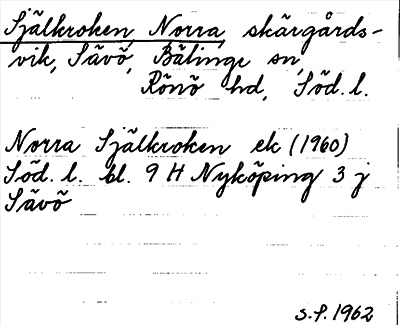 Själkroken, Norra, skärgårds-
vik, Sävö, Bälinge sn,
Rönö hd, Söd. l.
Norra Själkroken ek (1960)
Söd. l. bl. 9 H Nyköping 3 j
Sävö
s.f. 1962